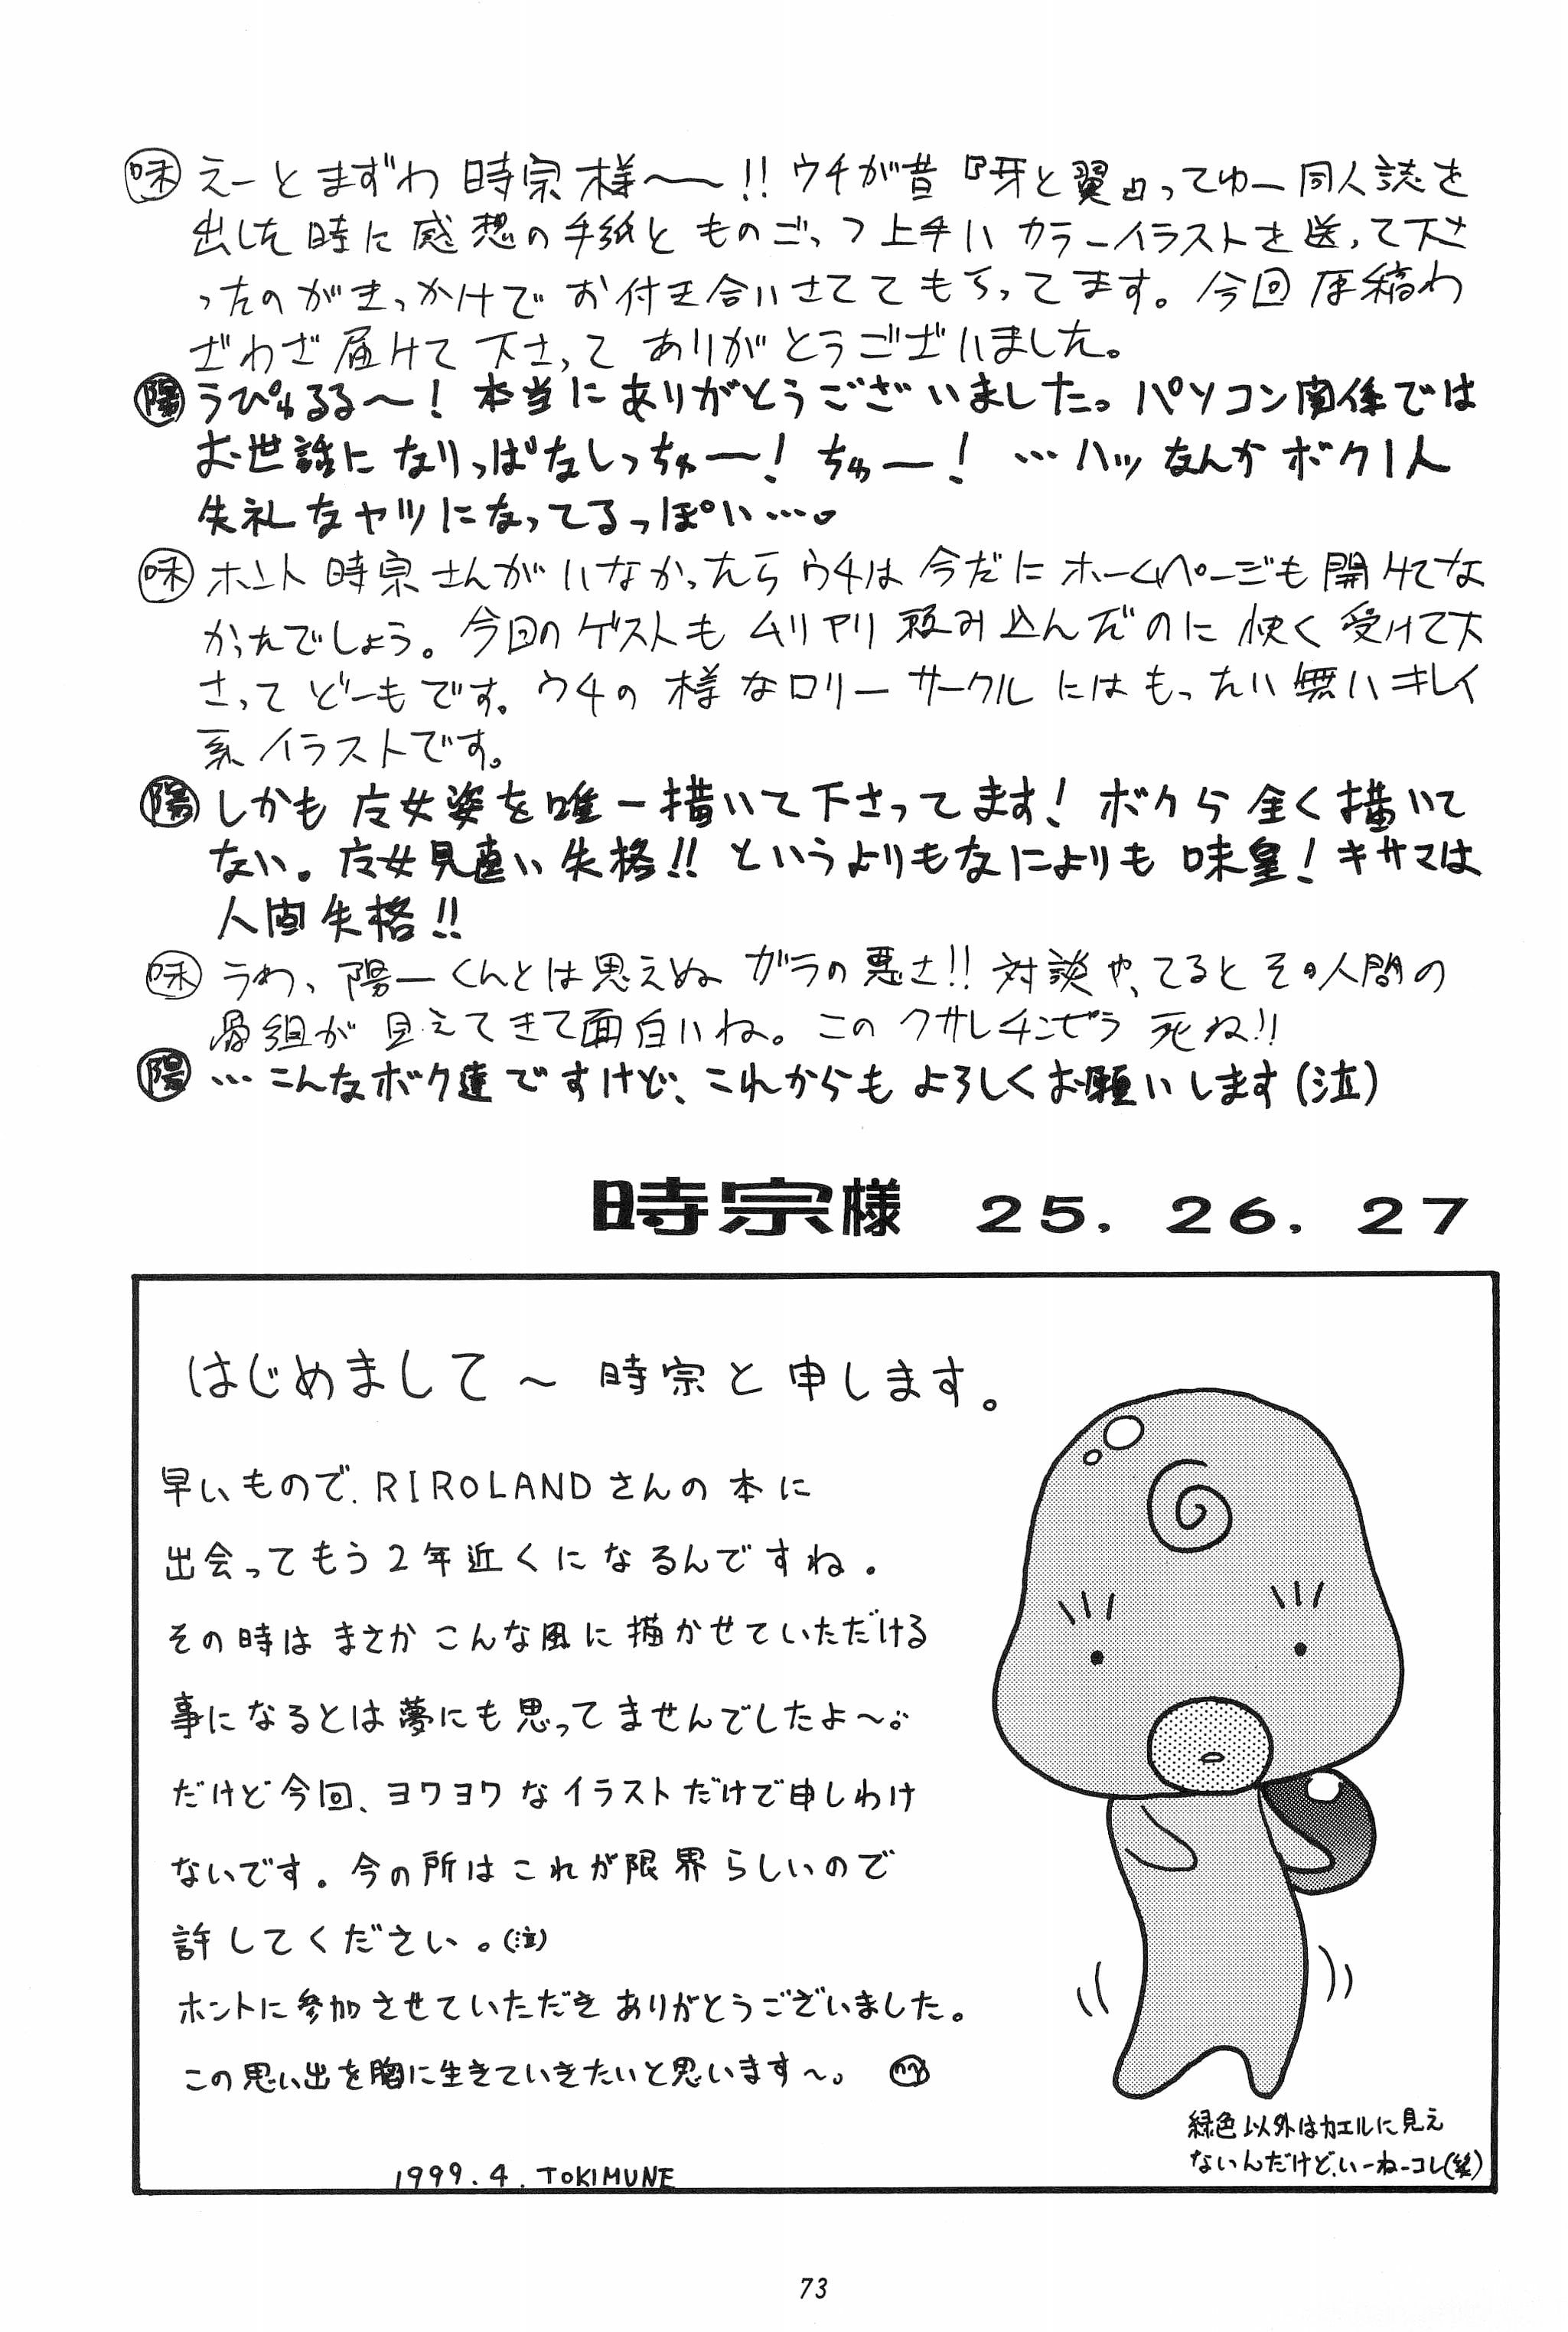 味 えーとまずわ 時宗様〜〜!! ウチが昔『牙と翼』ってゆー同人誌を
出した時に感想の手紙と ものごっつ上手いカラーイラストを送って下さ
ったのがきっかけで お付き合いさせてもらってます。今回原稿わ
ざわざ届けて下さって ありがとうございました。
陽 うぴゅるる〜! 本当にありがとうございました。パソコン関係では
お世話になりっぱなしっちゅー! ちゅー! …ハッなんかボク1人
失礼なヤツになってるっぽい…。
味 ホント時宗さんがいなかったらウチは今だにホームページも開けてな
かったでしょう。今回のゲストもムリヤリ頼み込んだのに快く受けて下
さってどーもです。ウチの様なロリーサークルにはもったい無いキレイ
系イラストです。
陽 しかも 巫女姿を唯一描いて下さってます! ボクら全く描いて
ない。巫女見直い失格!! というよりもなによりも 味皇! キサマは
人間失格!!
味 うわ、陽一くんとは思えぬガラの悪さ!! 対談やってるとその人間の
骨組が見えてきて面白いね。このクサレチンぞう 死ね!!
陽 …こんなボク達ですけど、これからもよろしくお願いします(泣)
時宗様 25. 26. 27
はじめまして〜 時宗と申します。
早いもので、RIROLANDさんの本に
出会ってもう2年近くになるんですね。
その時はまさかこんな風に描かせていただける
事になるとは夢にも思ってませんでしたよ〜。
だけど今回、ヨワヨワなイラストだけで申しわけ
ないです。今の所はこれが限界らしいので
許してください。(泣)
ホントに参加させていただきありがとうございました。
この思い出を胸に生きていきたいと思います〜。
1999.4. TOKIMUNE
緑色以外はカエルに見え
ないんだけど、いーねーコレ(笑)
73